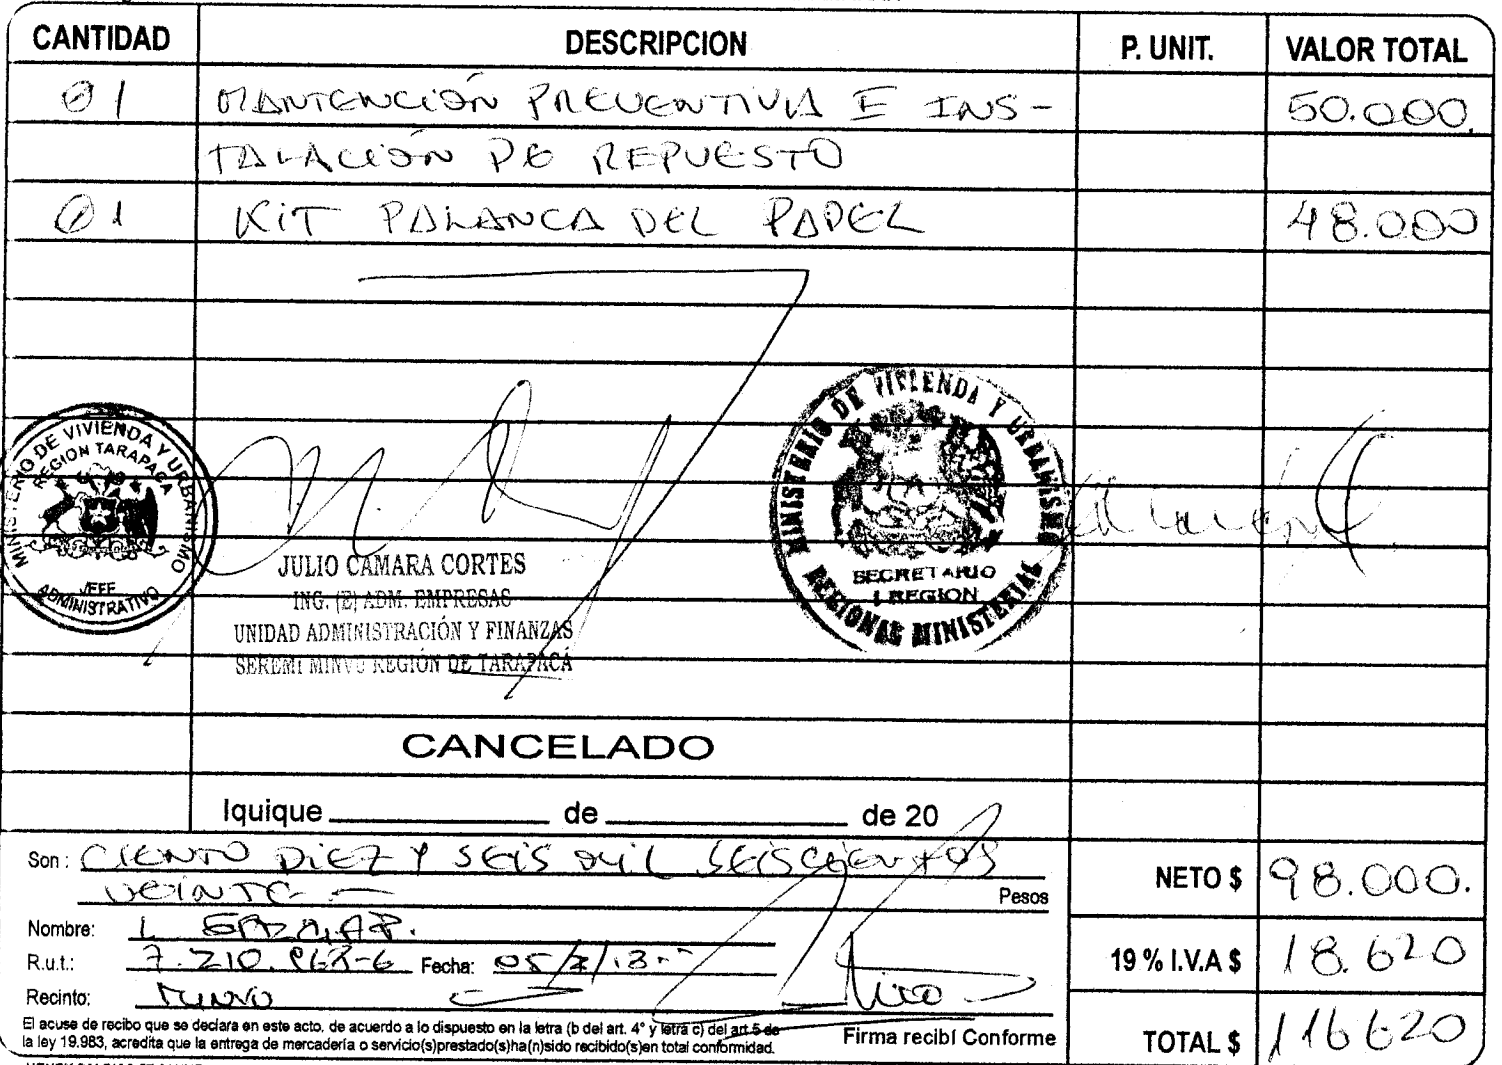 CANTIDAD DESCRIPCION P. UNIT. VALOR TOTAL
01 MANTENCIÓN PREVENTIVA E INS- 50.000
TALACIÓN DE REPUESTO
01 KIT PALANCA DEL PAPEL 48.000
MINISTERIO DE VIVIENDA Y URBANISMO
REGION TARAPACA
JEFE
ADMINISTRATIVO
JULIO CAMARA CORTES
ING. (E) ADM. EMPRESAS
UNIDAD ADMINISTRACIÓN Y FINANZAS
SEREMI MINVU REGIÓN DE TARAPACÁ
MINISTERIO DE VIVIENDA Y URBANISMO
SECRETARIO
I REGION
REGIONAL MINISTERIAL
CANCELADO
Iquique de de 20
Son: CIENTO DIEZ Y SEIS MIL SEISCIENTOS
VEINTE Pesos
NETO $ 98.000.
Nombre: L
R.u.t.: 7.210. Fecha:
19 % I.V.A $ 18.620
Recinto: MINVU
El acuse de recibo que se declara en este acto, de acuerdo a lo dispuesto en la letra (b del art. 4° y letra c) del art 5 de
la ley 19.983, acredita que la entrega de mercadería o servicio(s)prestado(s)ha(n)sido recibido(s)en total conformidad.
Firma recibí Conforme
TOTAL $ 116620